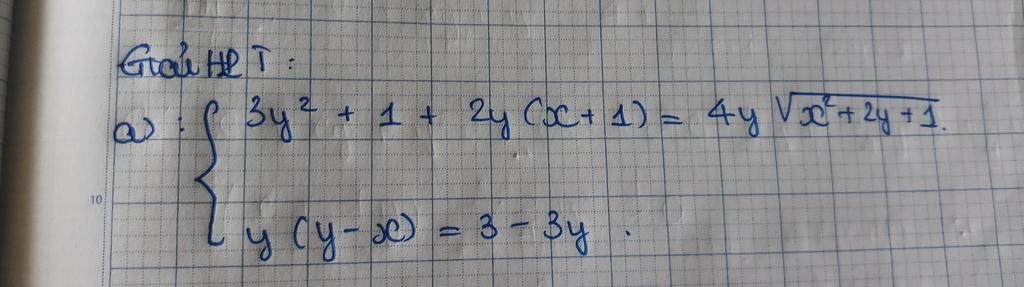 Giải HPT :
a) : { 3y² + 1 + 2y (x + 1) = 4y √(x² + 2y + 1) .
y (y - x) = 3 - 3y .
10